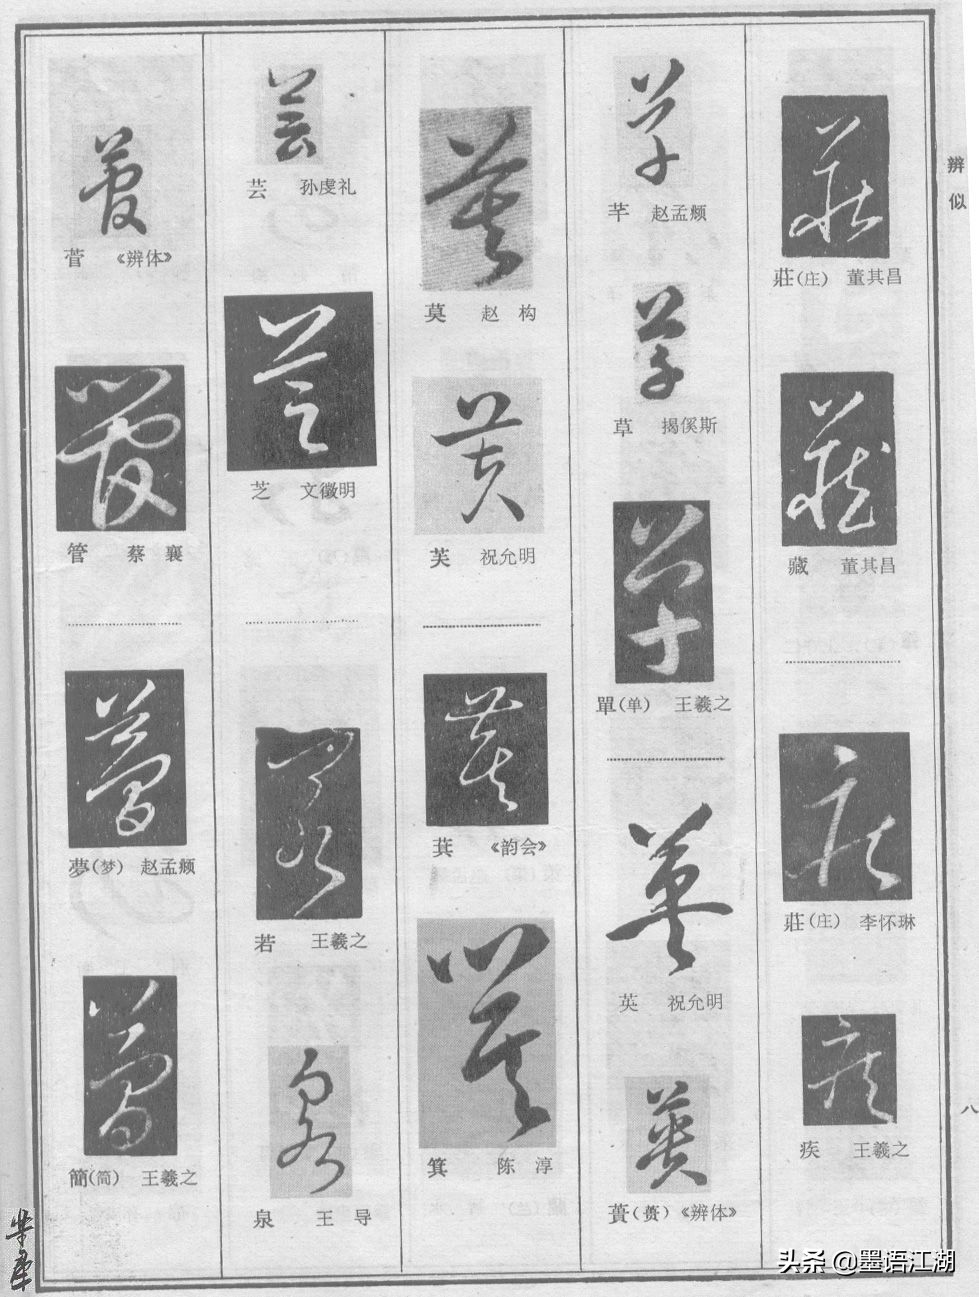 辨似
莊(庄) 董其昌
藏 董其昌
莊(庄) 李怀琳
疾 王羲之
芊 赵孟頫
草 揭傒斯
單(单) 王羲之
英 祝允明
蕢(蒉) 《辨体》
莫 赵构
芙 祝允明
萁 《韵会》
箕 陈淳
芸 孙虔礼
芝 文徵明
若 王羲之
泉 王导
菅 《辨体》
管 蔡襄
夢(梦) 赵孟頫
簡(简) 王羲之
八
头条 @墨语江湖